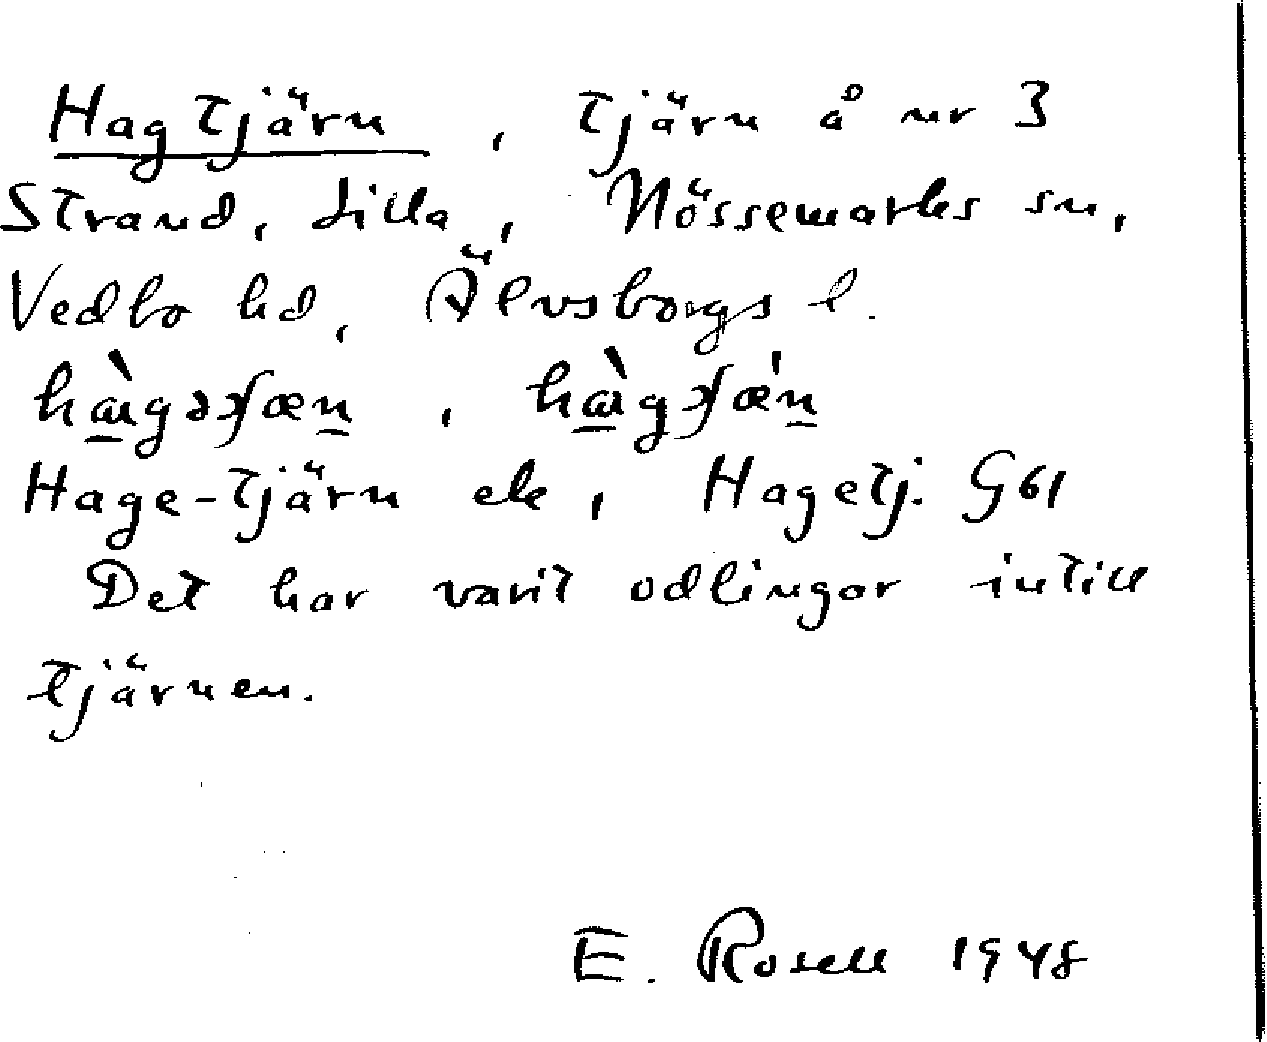 Hagtjärn, tjärn å nr 3
Strand, Lilla, Nössemarks sn,
Vedbo hd, Älvsborgs l.
Hage-tjärn ek, Hagetj. G61
Det har varit odlingar intill
tjärnen.
E. Rosell 1948